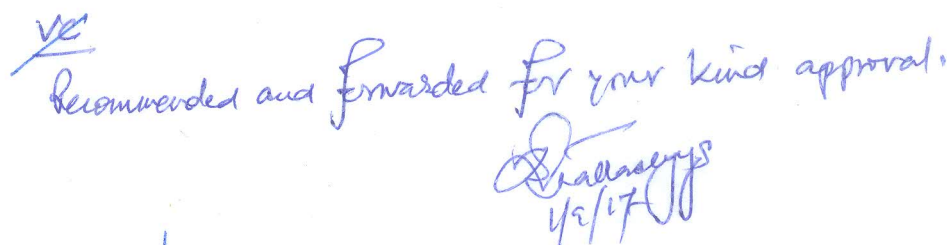 VC
Recommended and forwarded for your kind approval.
1/9/17